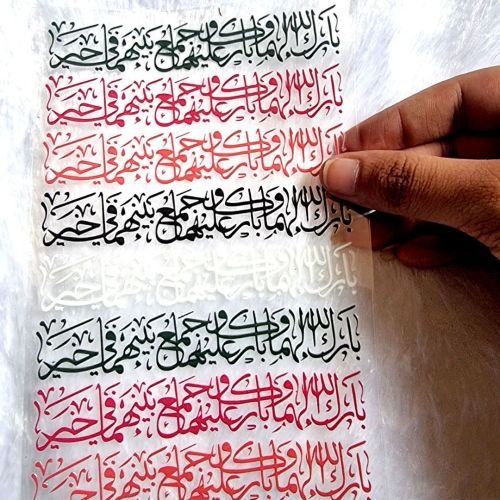 بارك الله لهما وبارك عليهما وجمع بينهما في خير
بارك الله لهما وبارك عليهما وجمع بينهما في خير
بارك الله لهما وبارك عليهما وجمع بينهما في خير
بارك الله لهما وبارك عليهما وجمع بينهما في خير
بارك الله لهما وبارك عليهما وجمع بينهما في خير
بارك الله لهما وبارك عليهما وجمع بينهما في خير
بارك الله لهما وبارك عليهما وجمع بينهما في خير
بارك الله لهما وبارك عليهما وجمع بينهما في خير